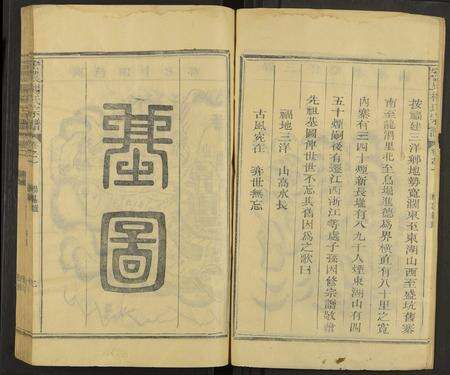 按福建三洋鄉地勢寬濶東至東湖山西至盛坑舊寨
南至龍滑里北至烏塲進德為界橫直有八十里之寬
內寨有三四十煙新長壠有八九十人煙東湖山有四
五十煙嗣後有遷江西浙江等處子孫因修宗譜敬繪
先祖基圖俾世世不忘其舊因為之歌曰
福地三洋 山高水長
古風宛在 奕世無忘
基圖